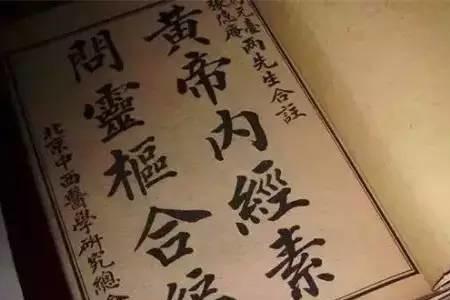 元臺張隱庵兩先生合註
黃帝內經素
問靈樞合
北京中西醫學研究總